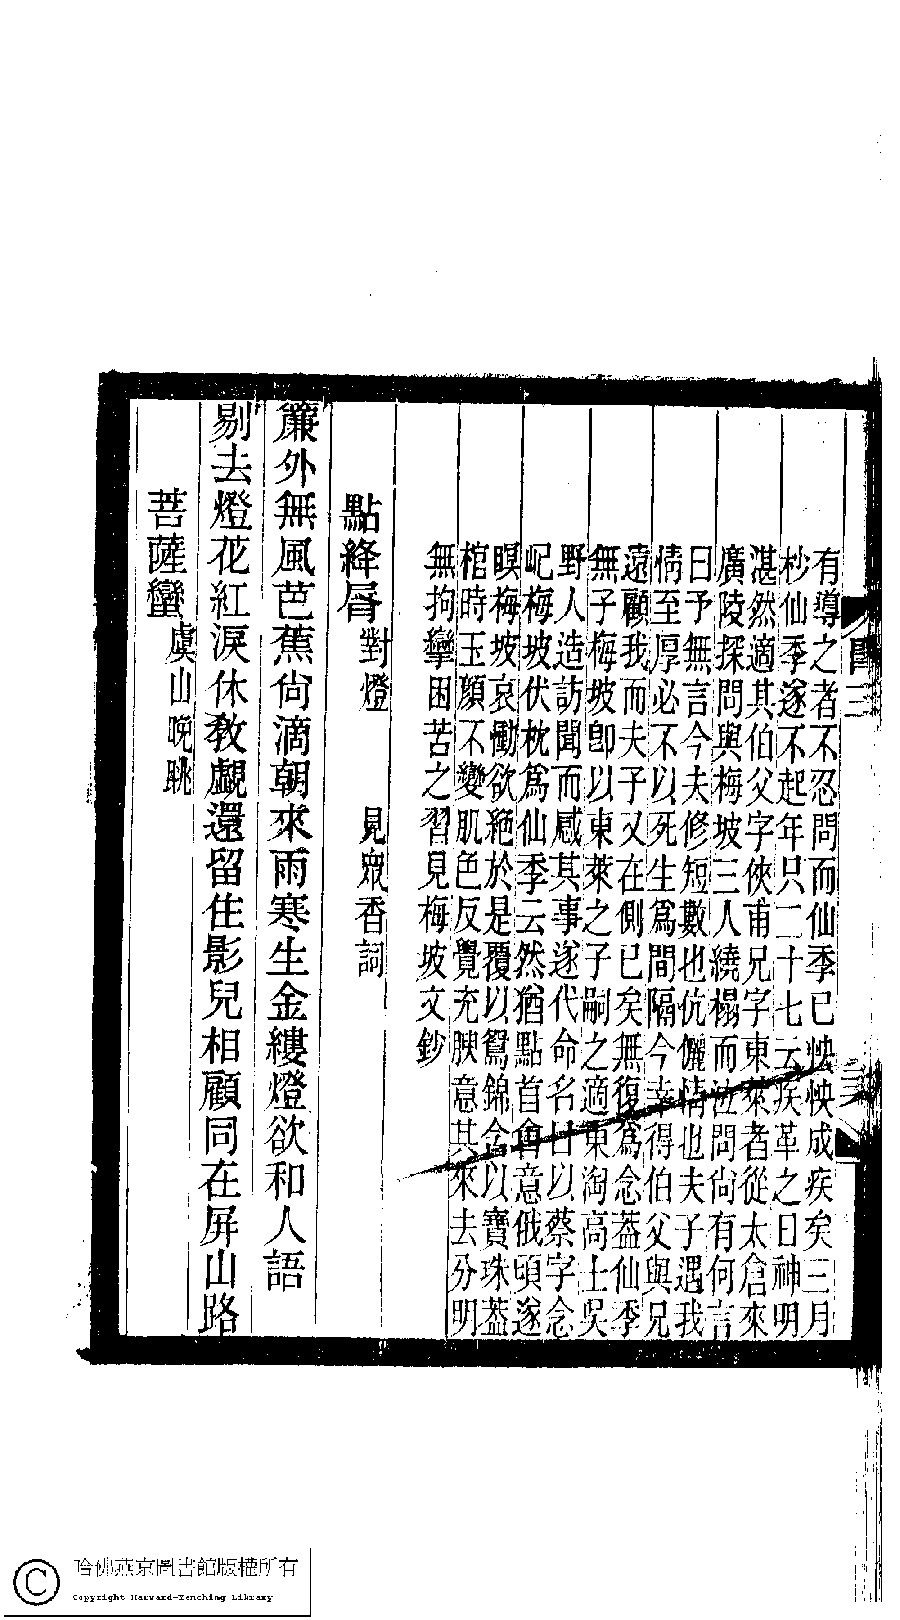 有導之者不忍問而仙季已怏怏成疾矣三月
杪仙季遂不起年只二十七云疾革之日神明
湛然適其伯父字俠甫兄字東萊者從太倉來
廣陵探問與梅坡三人繞榻而泣問尙有何言
曰予無言今夫修短數也伉儷情也夫子遇我
情至厚必不以死生爲間隔今幸得伯父與兄
遠顧我而夫子又在側已矣無復爲念葢仙季
無子梅坡卽以東萊之子嗣之適東淘高士吳
野人造訪聞而感其事遂代命名曰以蔡字念
屺梅坡伏枕爲仙季云然猶點首會意俄頃遂
瞑梅坡哀慟欲絶於是覆以鴛錦含以寶珠葢
棺時玉顔不變肌色反覺充腴意其來去分明
無拘攣困苦之習見梅坡文鈔
點絳唇 對燈 見衆香詞
簾外無風芭蕉尙滴朝來雨寒生金縷燈欲和人語
剔去燈花紅淚休敎覷還留住影兒相顧同在屏山路
菩薩蠻 虞山晚眺
哈佛燕京圖書館版權所有
Copyright Harvard-Yenching Library